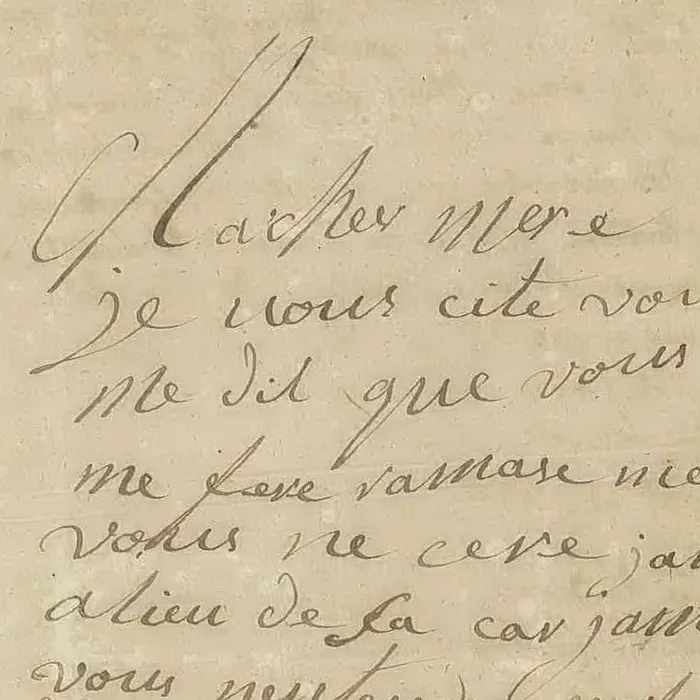 Macher mere
je vous cite vou
me dit que vous
me fere ramase me
vous ne cere jam
alieu de sa car jam
vous